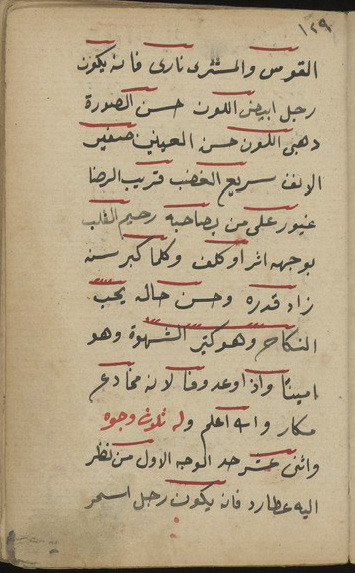 ١٢٩
القوس والمشترى نارى فانه يكون
رجل ابيض اللون حسن الصورة
دهبى اللون حسن العينين صغير
الانف سريع الغضب قريب الرضا
غيور على من يصاحبه رحيم القلب
بوجهه اثر او كلف وكلما كبر سنه
زاد قدره وحسن حاله يحب
النكاح وهو كثير الشهوة وهو
امينا واذا وعد وفا لانه مخادع
مكار والله اعلم وله ثلاث وجوه
واثنى عشر حد الوجه الاول من نظر
اليه عطارد فانه يكون رجل اسمر